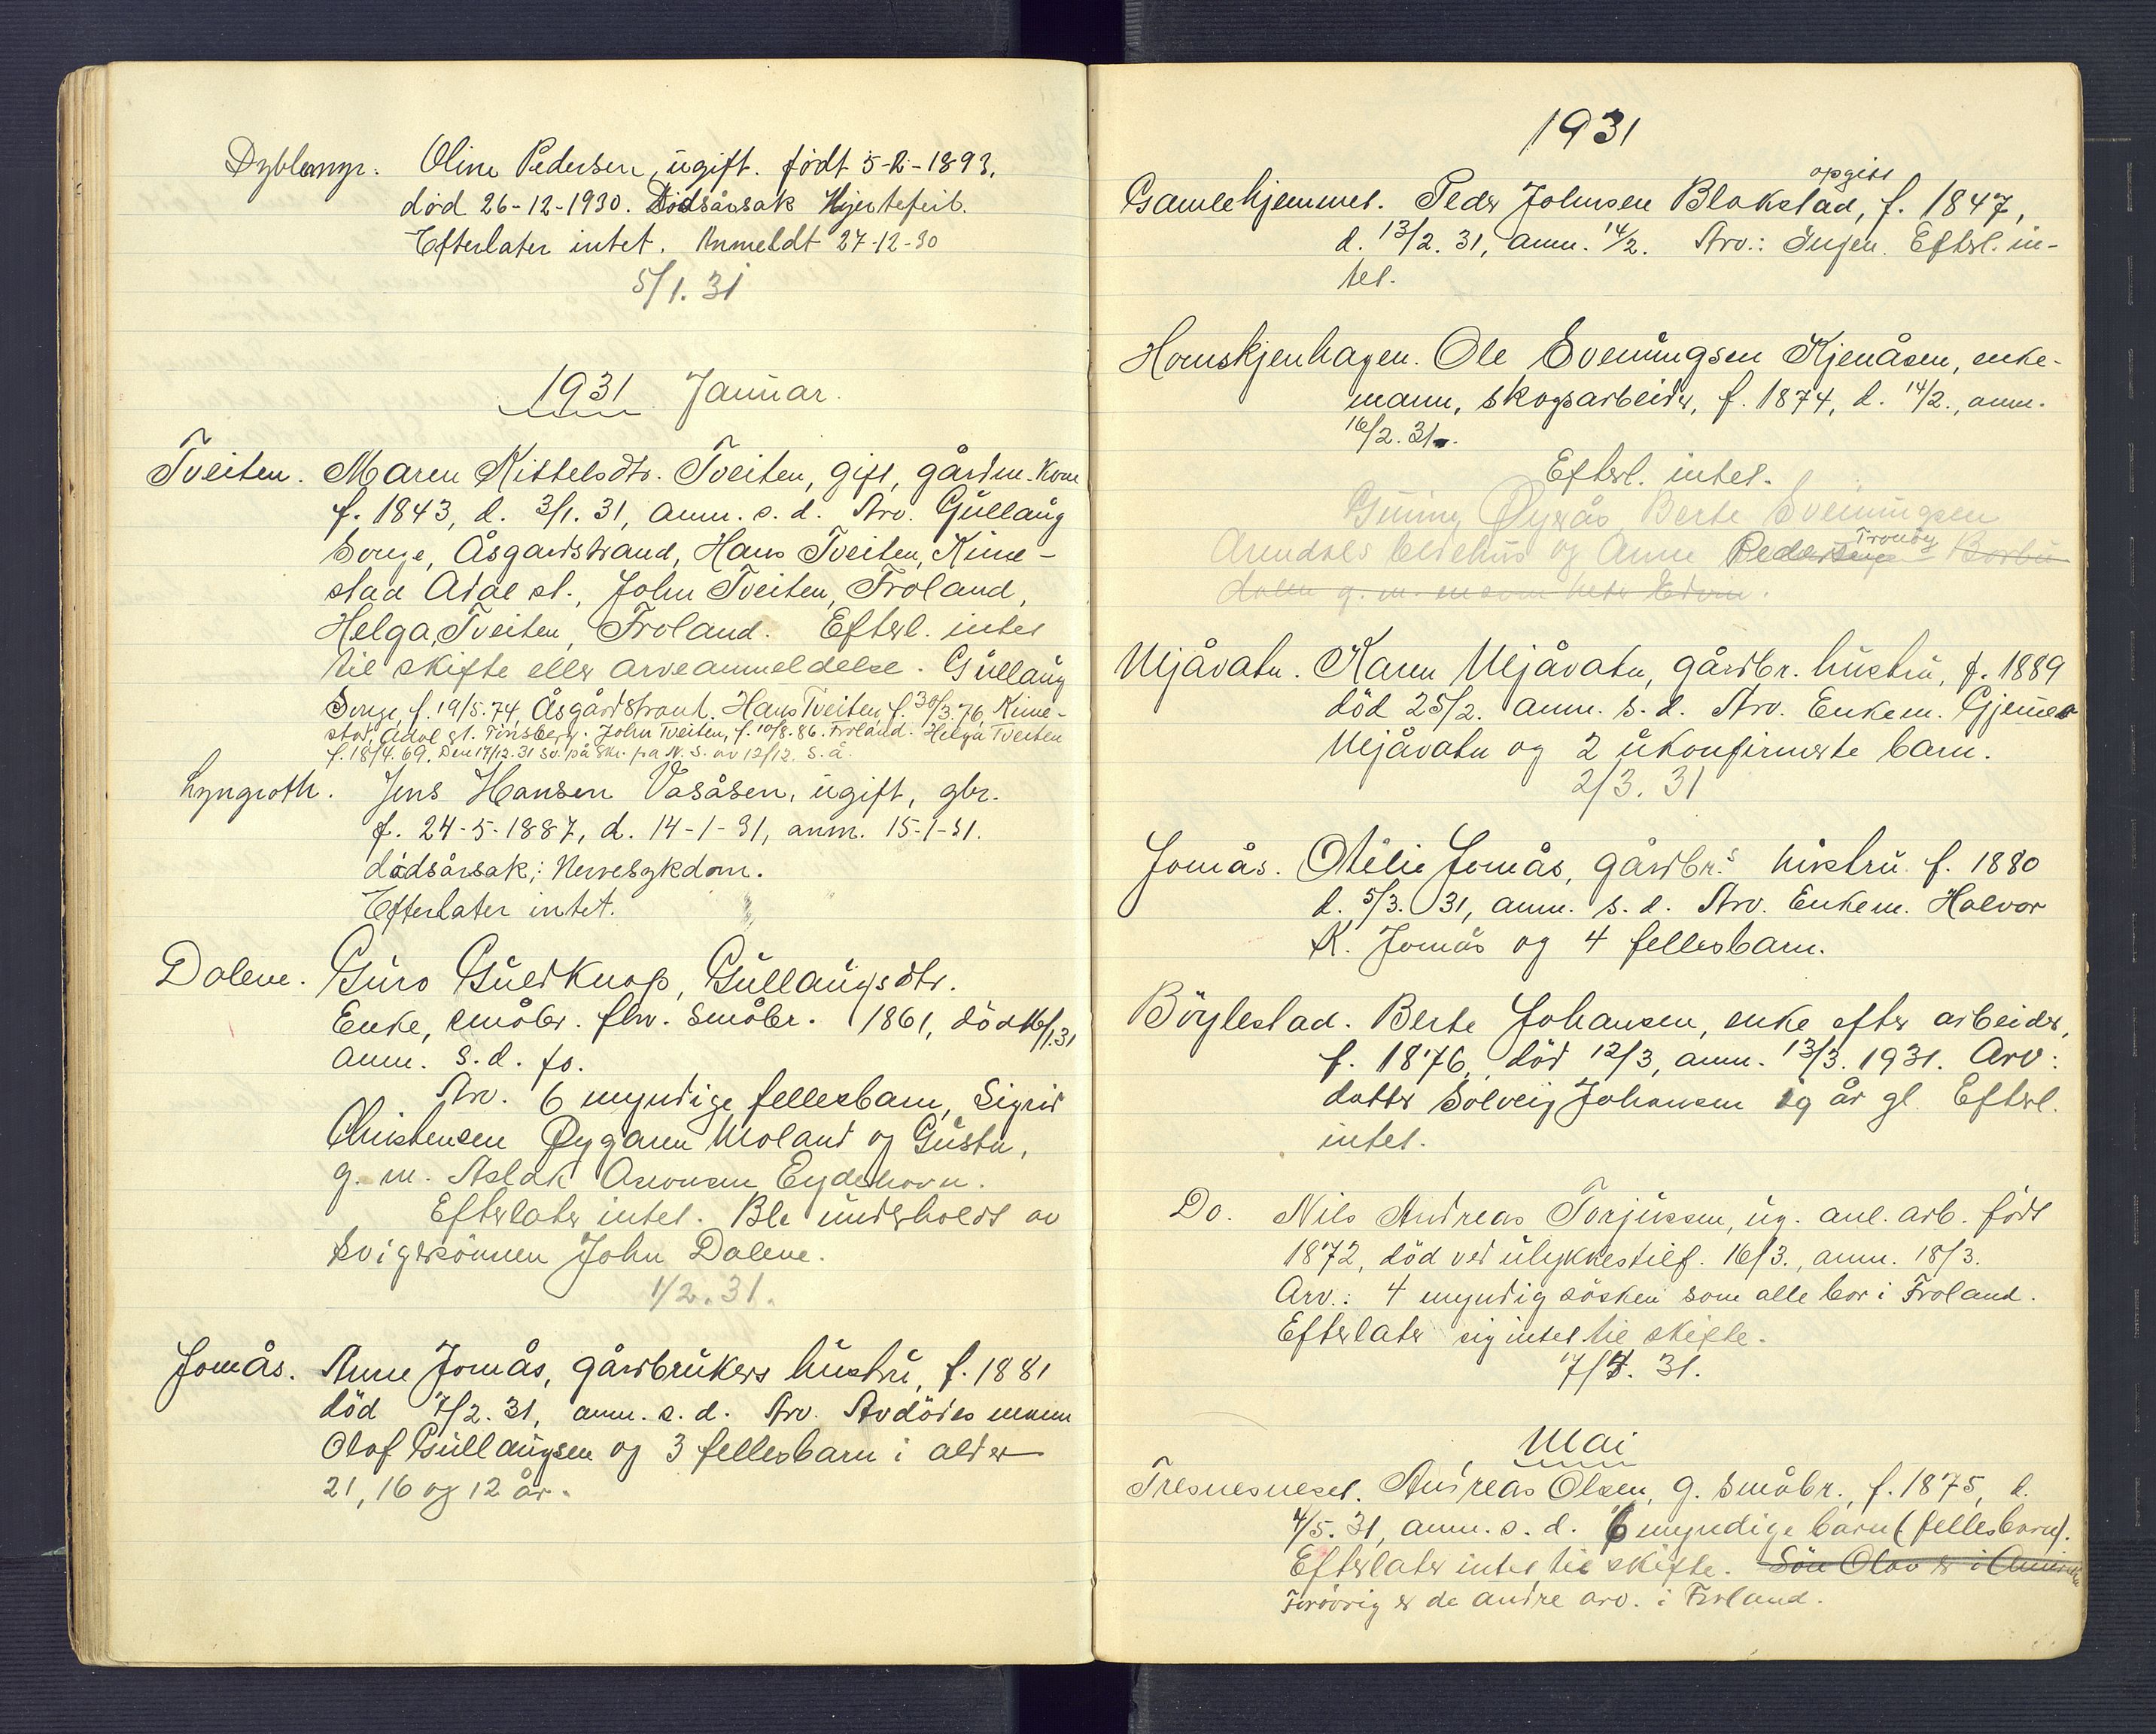 Dyblemyr. Oline Pedersen, ugift. født 5-2-1893.
død 26-12-1930. Dødsårsak Hjertefeil.
Efterlater intet. Anmeldt 27-12-30
5/1. 31
1931 Januar.
Tveiten. Maren Kittelsdtr. Tveiten, gift, gårdm. kone
f. 1843, d. 3/1. 31, anm. s. d. Arv. Gullaug
Songe, Åsgardstrand, Hans Tveiten, Kime-
stad Adal st., John Tveiten, Froland,
Helga Tveiten, Froland. Efterl. intet
til skifte eller arveanmeldelse. Gullaug
Songe, f. 19/5. 74, Åsgårdstrand. Hans Tveiten, f. 30/3. 76, Kime-
stad, Adal st. Tønsberg. John Tveiten, f. 10/8. 86. Froland. Helga Tveiten
f. 18/4. 69. Den 17/12. 31 sv. på skr. fra N. S. av 12/12. s. å.
Lyngroth. Jens Hansen Vasåsen, ugift, gbr.
f. 24-5-1887, d. 14-1-31, anm. 15-1-31.
dødsårsak; Nervesykdom.
Efterlater intet.
Dalene. Guro Guldknap, Gullaugsdtr.
Enke, småbr. fhv. småbr. 1861, død 16/1.31
anm. s. d. fo.
Arv. 6 myndige fellesbarn, Sigrid
Christensen Øygarn Moland og Gusta,
g. m. Aslak Asronsen Eydehavn.
Efterlater intet. Ble underholdt av
svigersønnen John Dalene.
1/2. 31.
Jomås. Anne Jomås, gårdbrukers hustru, f. 1881
død 7/2. 31, anm. s. d. Arv. Avdødes mann
Olaf Gullaugsen og 3 fellesbarn i alder
21, 16 og 12 år.
1931
opgitt
Gamlehjemmet. Peder Johnsen Blakstad, f. 1847,
d. 13/2. 31, anm. 14/2. Arv.: Ingen. Efterl. in-
tet.
Homskjenhagen. Ole Sveningsen Kjenåsen, enke-
mann, skogsarbeider, f. 1874, d. 14/2., anm.
16/2. 31.
Efterl. intet.
Gunny Øyrås, Berte Sveinungsen
Tromøy
Arendals eldrehus og Anne Pedersen Barbu
dalen g. m. en som heter Edvin.
Mjåvatn. Karen Mjåvatn, gårdbr. hustru, f. 1889
død 25/2. anm. s. d. Arv. Enkem. Gjermer
Mjåvatn og 2 ukonfirmerte barn.
2/3. 31
Jomås. Otelie Jomås, gårdbr.s hustru f. 1880
d. 5/3. 31, anm. s. d. Arv. Enkem. Halvor
K. Jomås og 4 fellesbarn.
Böylestad. Berte Johansen, enke efter arbeider,
f. 1876, død 12/3, anm. 13/3. 1931. Arv:
datter Solveig Johansen 19 år gl. Efterl.
intet.
Do. Nils Andreas Torjussen, ug. anl. arb. født
1872, död ved ulykkestilf. 16/3., anm. 18/3.
Arv.: 4 myndig søsken som alle bor i Froland.
Efterlater sig intet til skifte.
7/4. 31.
Mai
Tresnesneset. Andreas Olsen, g. småbr., f. 1875, d.
4/5. 31, anm. s. d. 6 myndige barn (fellesbarn).
Efterlater intet til skifte. Søn Olav er i Amerika
Forøvrig er de andre arv. i Froland.